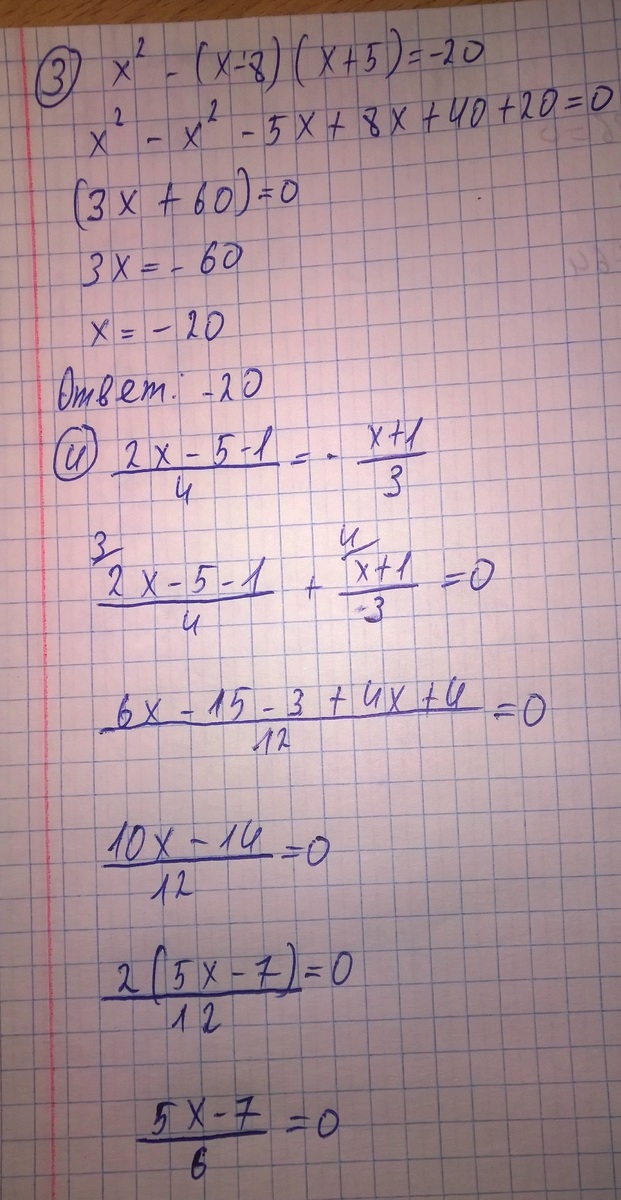 ③ x² - (x-8)(x+5)=-20
x² - x² - 5x + 8x + 40 + 20 = 0
(3x + 60) = 0
3x = - 60
x = - 20
Ответ: -20
④ (2x - 5 - 1)/4 = - (x+1)/3
3/ (2x - 5 - 1)/4 + 4/ (x+1)/-3 = 0
(6x - 15 - 3 + 4x + 4)/12 = 0
(10x - 14)/12 = 0
2(5x - 7)/12 = 0
(5x - 7)/6 = 0